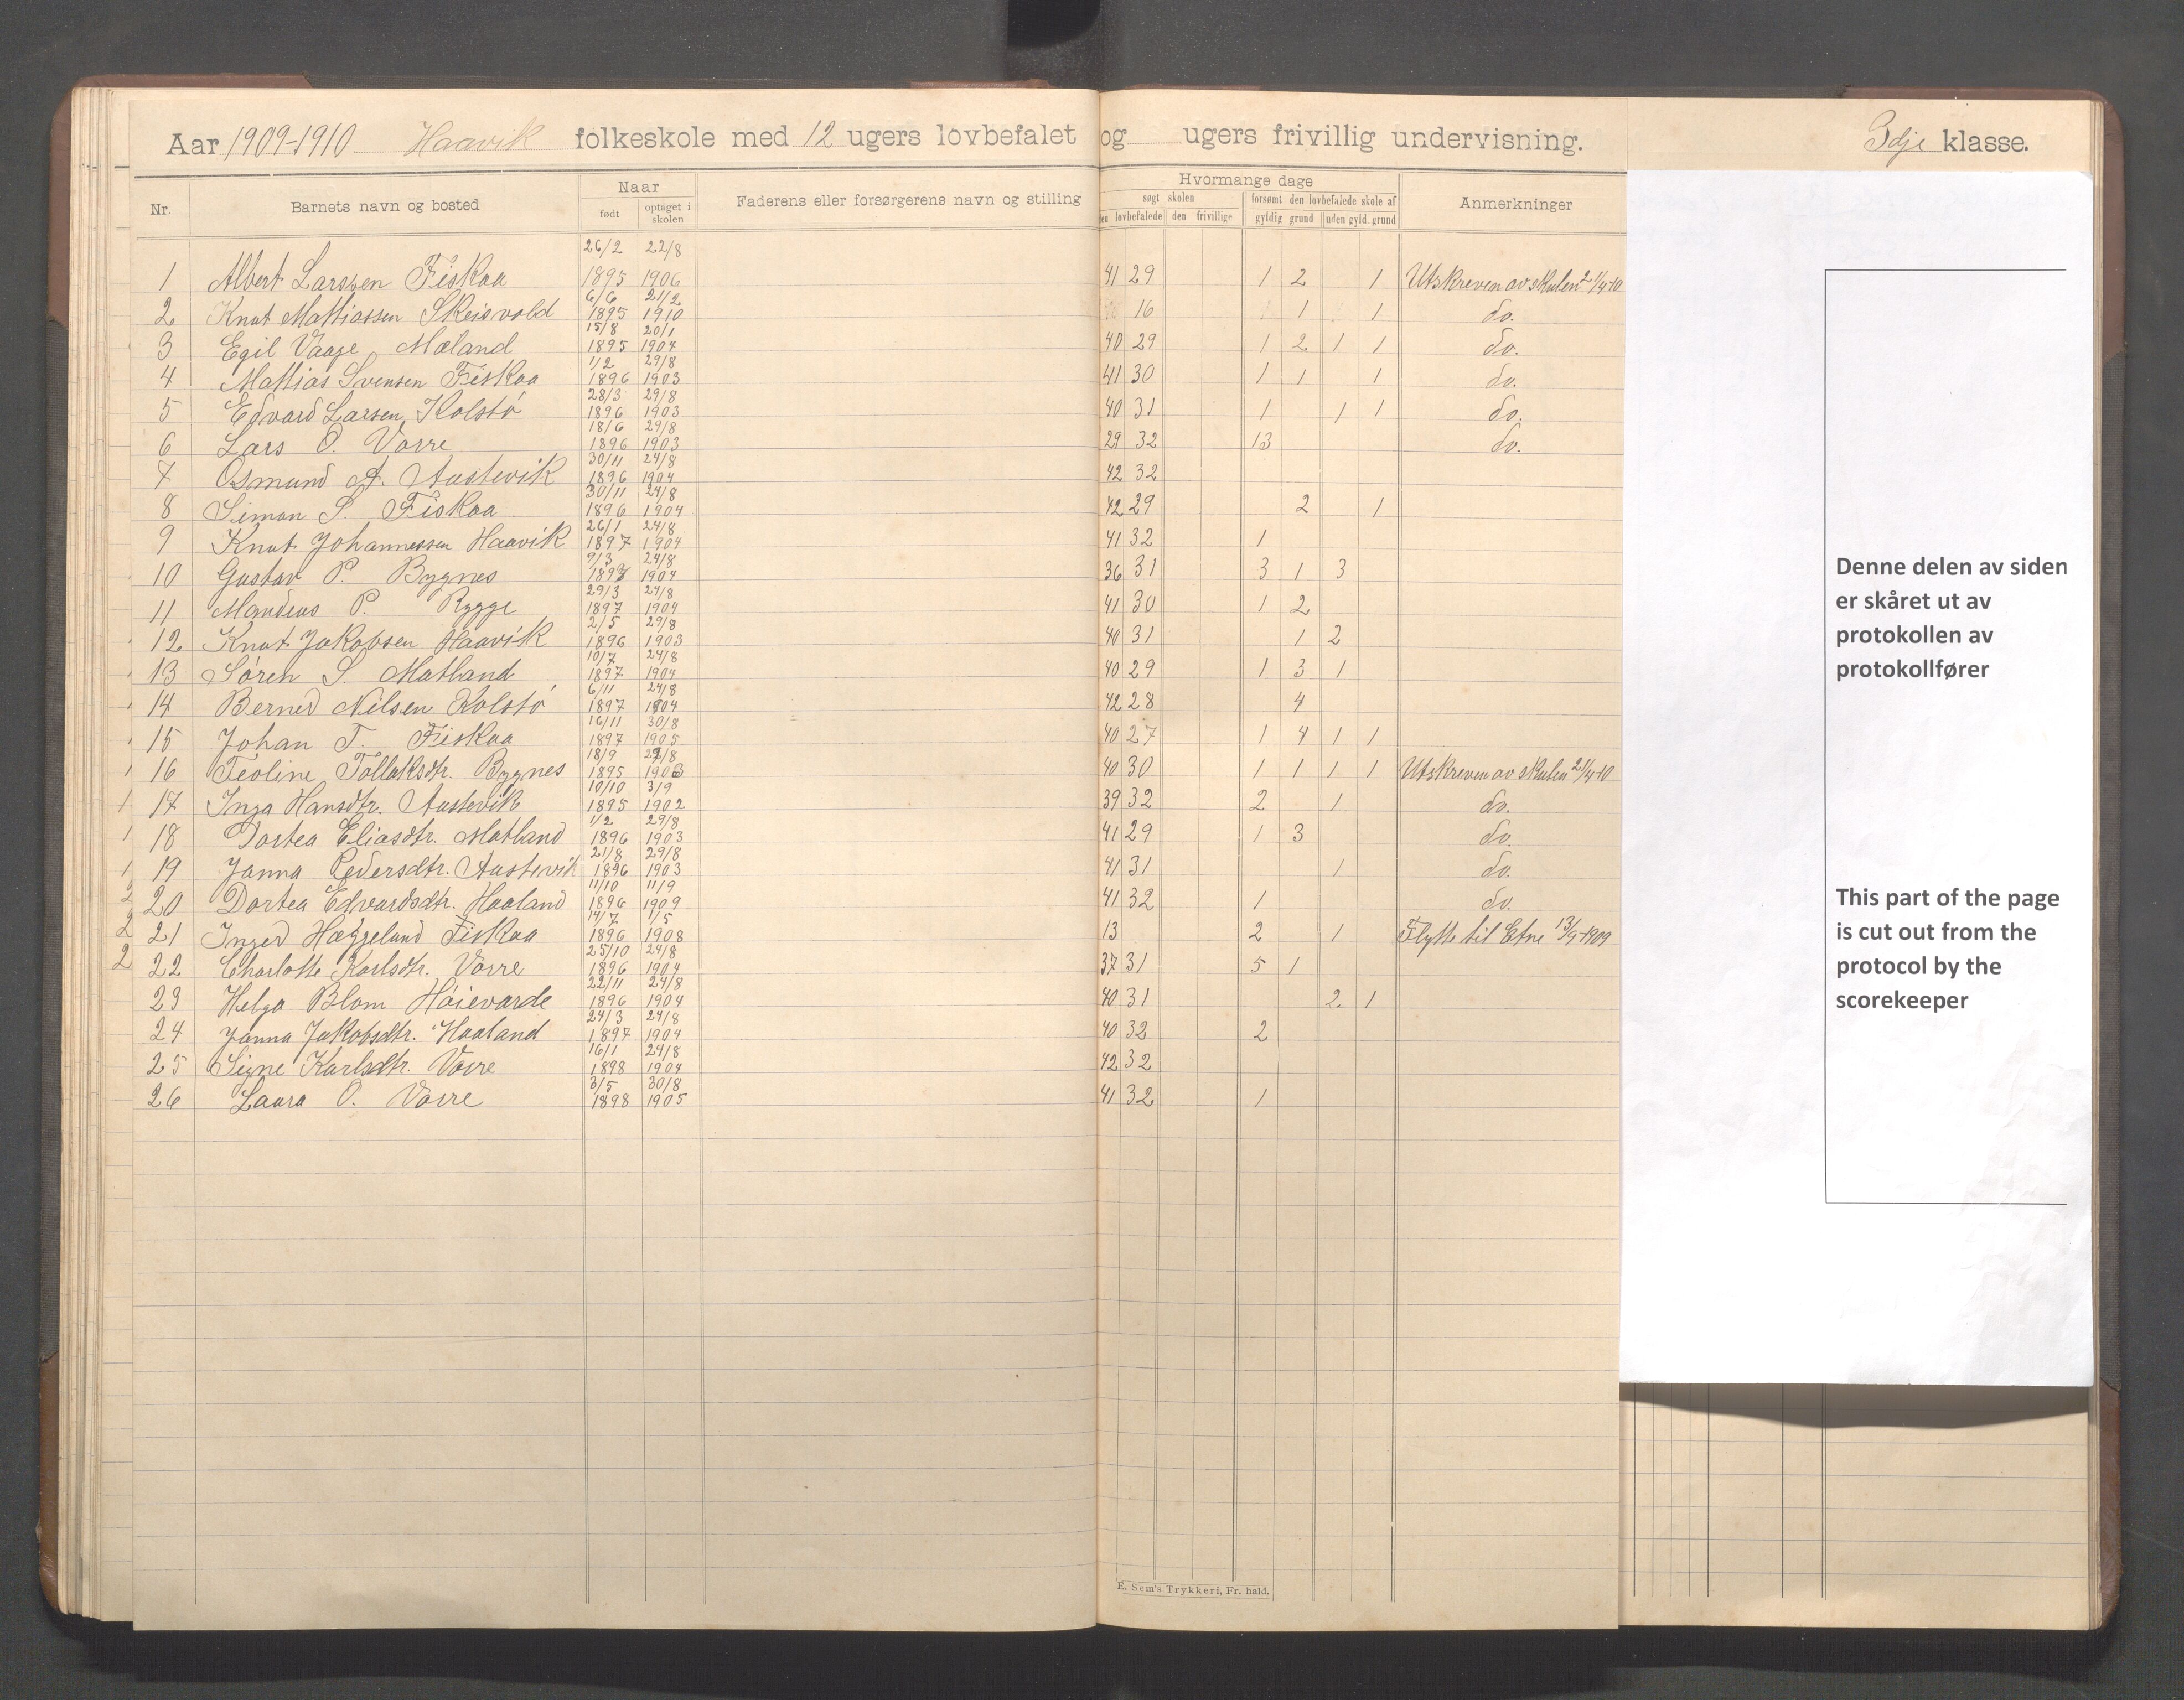 Aar 1909-1910 Haavik folkeskole med 12 ugers lovbefalet og ugers frivillig undervisning. 3dje klasse.
Nr. Barnets navn og bosted Naar født optaget i skolen Faderens eller forsørgerens navn og stilling Hvormange dage søgt skolen den lovbefalede den frivillige forsømt den lovbefalede skole af gyldig grund uden gyld. grund Anmerkninger
1 Albert Larssen Fiskaa 26/2 1895 22/8 1906 41 29 1 2 1 Utskreven av skulen 21/4-10
2 Knut Mattiassen Skeisvold 6/6 1895 21/2 1910 16 1 1 do.
3 Egil Vaage Mæland 15/8 1895 20/1 1904 40 29 1 2 1 1 do.
4 Mattias Svensen Fiskaa 1/2 1896 29/8 1903 41 30 1 1 1 do.
5 Edvard Larsen Kolstø 28/3 1896 29/8 1903 40 31 1 1 1 do.
6 Lars O. Vorre 18/6 1896 29/8 1903 29 32 13 do.
7 Osmund A. Austevik 30/11 1896 24/8 1904 42 32
8 Simon S. Fiskaa 30/11 1896 24/8 1904 42 29 2 1
9 Knut Johannessen Haavik 26/1 1897 24/8 1904 41 32 1
10 Gustav P. Bygnes 9/3 1897 24/8 1904 36 31 3 1 3
11 Mandeus P. Rygge 29/3 1897 24/8 1904 41 30 1 2
12 Knut Jakobsen Haavik 2/5 1896 29/8 1903 40 31 1 2
13 Søren S. Matland 10/7 1897 24/8 1904 40 29 1 3 1
14 Berned Nilsen Kolstø 6/11 1897 24/8 1904 42 28 4
15 Johan T. Fiskaa 16/11 1897 30/8 1905 40 27 1 4 1 1
16 Teoline Tollaksdtr. Bygnes 18/9 1895 29/8 1903 40 30 1 1 1 1 Utskreven av skulen 21/4-10
17 Inga Hansdtr. Austevik 10/10 1895 3/9 1902 39 32 2 1 do.
18 Dortea Eliasdtr. Matland 1/2 1896 29/8 1903 41 29 1 3 do.
19 Janna Pedersdtr. Austevik 21/8 1896 29/8 1903 41 31 1 do.
20 Dortea Edvardsdtr. Haaland 11/10 1896 11/9 1909 41 32 1 do.
21 Inger Hæggelund Fiskaa 14/7 1896 1/5 1908 13 2 1 Flytte til Etne 13/9-1909
22 Charlotte Karlsdtr. Vorre 25/10 1896 24/8 1904 37 31 5 1
23 Helga Blom Høievarde 22/11 1896 24/8 1904 40 31 2. 1
24 Janna Jakobsdtr. Haaland 24/3 1897 24/8 1904 40 32 2
25 Signe Karlsdtr. Vorre 16/1 1898 24/8 1904 42 32
26 Laura O. Vorre 3/5 1898 30/8 1905 41 32 1
E. Sem's Trykkeri, Fr. hald.
Denne delen av siden
er skåret ut av
protokollen av
protokollfører
This part of the page
is cut out from the
protocol by the
scorekeeper